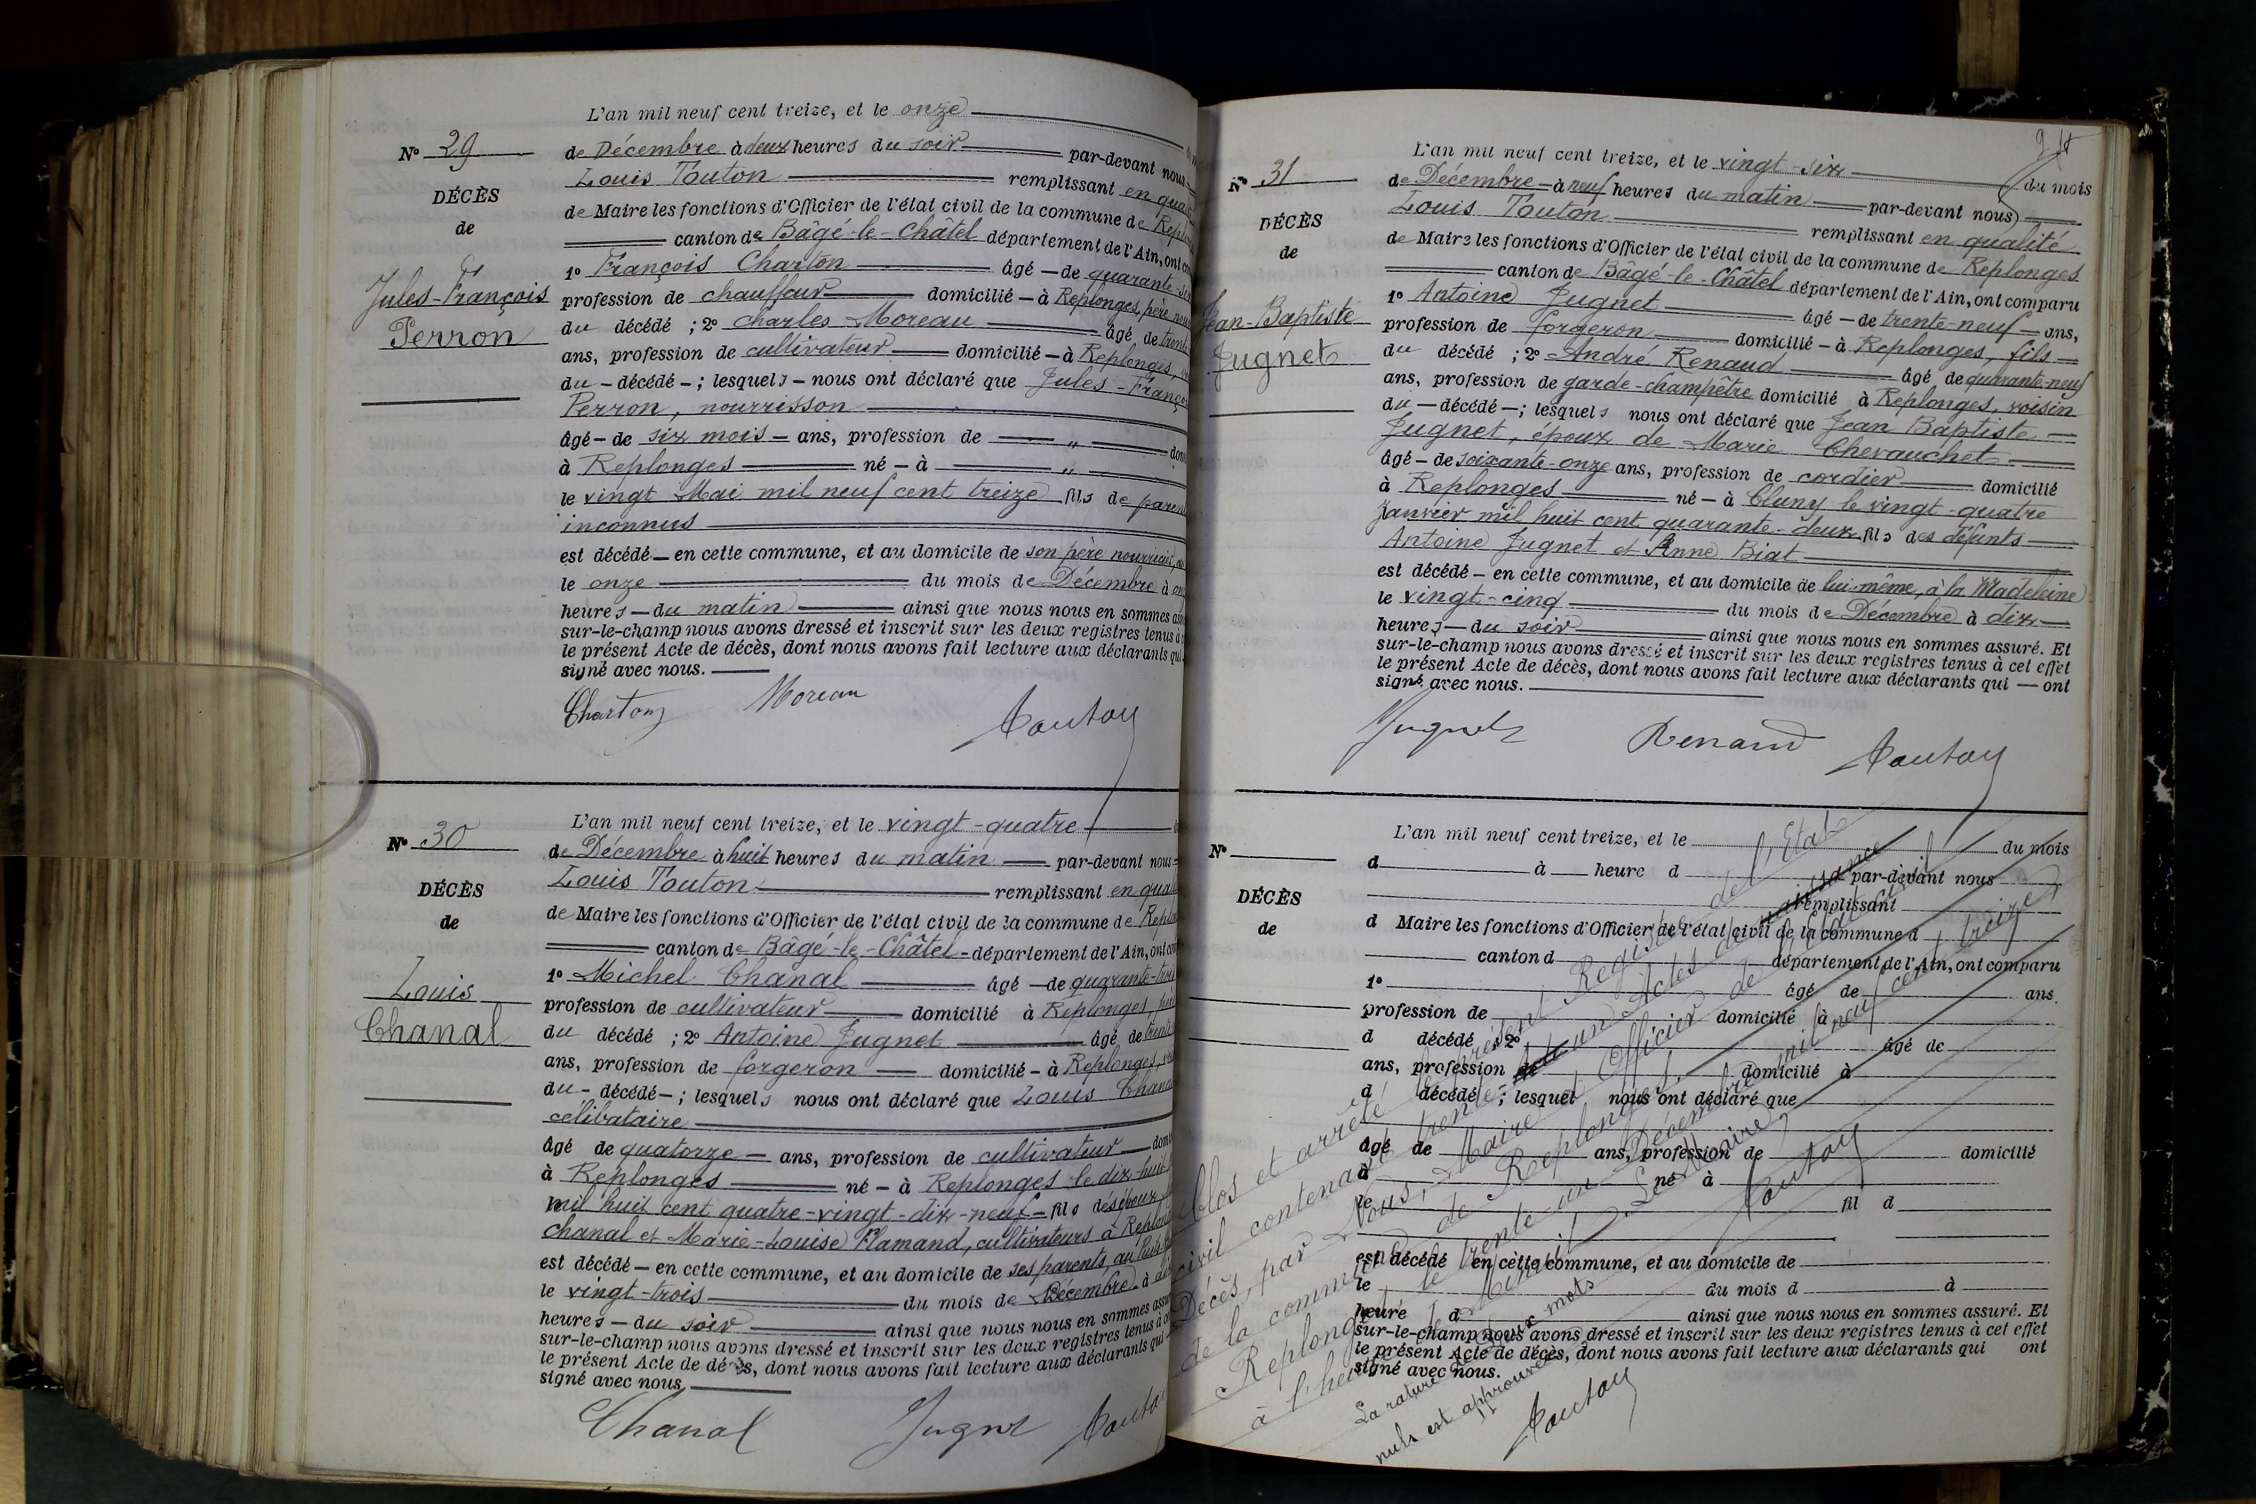 L'an mil neuf cent treize, et le onze
N° 29
de Décembre à deux heures du soir par-devant nous
Louis Touton remplissant en
DÉCÈS
de Maire les fonctions d'Officier de l'état civil de la commune de
de
canton de Bâgé-le-Châtel département de l'Ain, ont
1° François Charton âgé de
Jules-François
profession de chauffeur domicilié à Replonges, père
Perron
du décédé ; 2° Charles Moreau âgé de
ans, profession de cultivateur domicilié à Replonges,
du décédé ; lesquels nous ont déclaré que Jules-
Perron, nourrisson
âgé de six mois ans, profession de "
à Replonges né à "
le vingt Mai mil neuf cent treize fils de
inconnus
est décédé en cette commune, et au domicile de son père nourricier,
le onze du mois de Décembre à
heures du matin ainsi que nous nous en sommes
sur-le-champ nous avons dressé et inscrit sur les deux registres tenus à
le présent Acte de décès, dont nous avons fait lecture aux déclarants qui
signé avec nous.
Charton Moreau Touton
L'an mil neuf cent treize, et le vingt-quatre
N° 30
de Décembre à huit heures du matin par-devant nous
Louis Touton remplissant en
DÉCÈS
de Maire les fonctions d'Officier de l'état civil de la commune de
de
canton de Bâgé-le-Châtel département de l'Ain, ont
1° Michel Chanal âgé de
Louis
profession de cultivateur domicilié à Replonges
Chanal
du décédé ; 2° Antoine Jugnet âgé de
ans, profession de forgeron domicilié à Replonges,
du décédé ; lesquels nous ont déclaré que Louis
célibataire
âgé de quatorze ans, profession de cultivateur
à Replonges né à Replonges le dix-huit
mil huit cent quatre-vingt-dix-neuf fils des époux
Chanal et Marie-Louise Flamand, cultivateurs à
est décédé en cette commune, et au domicile de ses parents,
le vingt-trois du mois de Décembre à
heures du soir ainsi que nous nous en sommes
sur-le-champ nous avons dressé et inscrit sur les deux registres tenus à
le présent Acte de décès, dont nous avons fait lecture aux déclarants qui
signé avec nous.
Chanal Jugnet Touton
L'an mil neuf cent treize, et le vingt-six du mois
N° 31
de Décembre à neuf heures du matin par-devant nous
Louis Touton remplissant en qualité
DÉCÈS
de Maire les fonctions d'Officier de l'état civil de la commune de Replonges
de
canton de Bâgé-le-Châtel département de l'Ain, ont comparu
1° Antoine Jugnet âgé de trente-neuf ans,
Jean-Baptiste
profession de forgeron domicilié à Replonges, fils
Jugnet
du décédé ; 2° André Renaud âgé de quarante-neuf
ans, profession de garde-champêtre domicilié à Replonges, voisin
du décédé ; lesquels nous ont déclaré que Jean Baptiste
Jugnet, époux de Marie Chevauchet
âgé de soixante-onze ans, profession de cordier domicilié
à Replonges né à Cluny le vingt-quatre
Janvier mil huit cent quarante-deux fils des défunts
Antoine Jugnet et Anne Biat
est décédé en cette commune, et au domicile de lui-même, à la Madeleine
le vingt-cinq du mois de Décembre à dix
heures du soir ainsi que nous nous en sommes assuré. Et
sur-le-champ nous avons dressé et inscrit sur les deux registres tenus à cet effet
le présent Acte de décès, dont nous avons fait lecture aux déclarants qui ont
signé avec nous.
Jugnet Renaud Touton
L'an mil neuf cent treize, et le du mois
N°
d à heure d par-devant nous
remplissant
DÉCÈS
d Maire les fonctions d'Officier de l'état civil de la commune d
de
canton d département de l'Ain, ont comparu
1° âgé de ans,
profession de domicilié à
d décédé ; 2° âgé de
ans, profession de domicilié à
d décédé ; lesquel nous ont déclaré que
âgé de ans, profession de domicilié
à né à
le fil d
est décédé en cette commune, et au domicile de
le du mois d à
heure d ainsi que nous nous en sommes assuré. Et
sur-le-champ nous avons dressé et inscrit sur les deux registres tenus à cet effet
le présent Acte de décès, dont nous avons fait lecture aux déclarants qui ont
signé avec nous.
Clos et arrêté le présent Registre de l'Etat
civil contenant trente un Actes de
Décès, par Nous, Maire et Officier de l'état civil
de la commune de Replonges.
Replonges le trente-un Décembre mil neuf cent treize
à l'heure de Minuit. Le Maire,
Touton
La rature de deux mots
nuls est approuvée
Touton